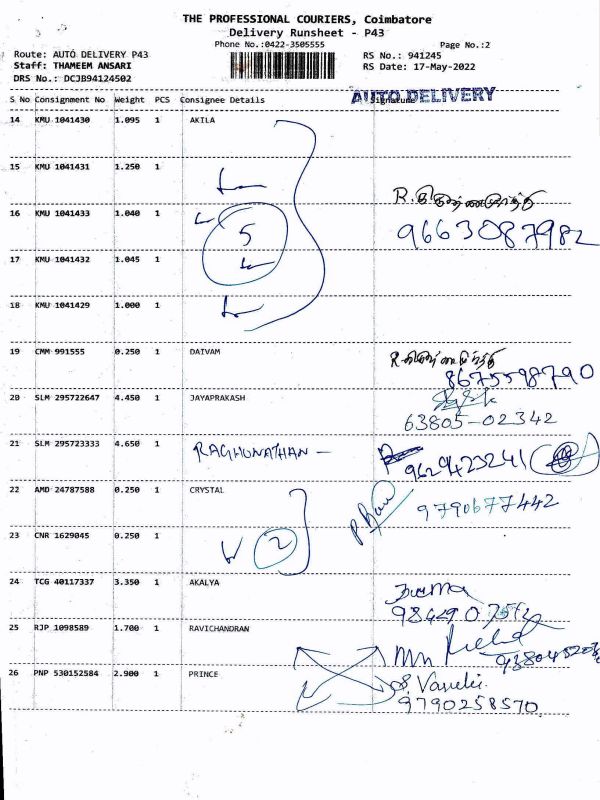 THE PROFESSIONAL COURIERS, Coimbatore
Delivery Runsheet - P43
Phone No.:0422-3505555
Page No.:2
Route: AUTO DELIVERY P43
RS No.: 941245
Staff: THAMEEM ANSARI
RS Date: 17-May-2022
DRS No.: DCJB94124502
S No Consignment No Weight PCS Consignee Details Signature
AUTO DELIVERY
14 KMU 1041430 1.095 1 AKILA
15 KMU 1041431 1.250 1
16 KMU 1041433 1.040 1
5
9663087982
17 KMU 1041432 1.045 1
18 KMU 1041429 1.000 1
19 CMM 991555 0.250 1 DAIVAM
8675598790
20 SLM 295722647 4.450 1 JAYAPRAKASH
63805-02342
21 SLM 295723333 4.650 1 RAGHUNATHAN -
9629423241
22 AMD 24787588 0.250 1 CRYSTAL
9790677442
23 CNR 1629045 0.250 1
2
24 TCG 40117337 3.350 1 AKALYA
25 RJP 1098589 1.700 1 RAVICHANDRAN
26 PNP 530152584 2.900 1 PRINCE
9790258570